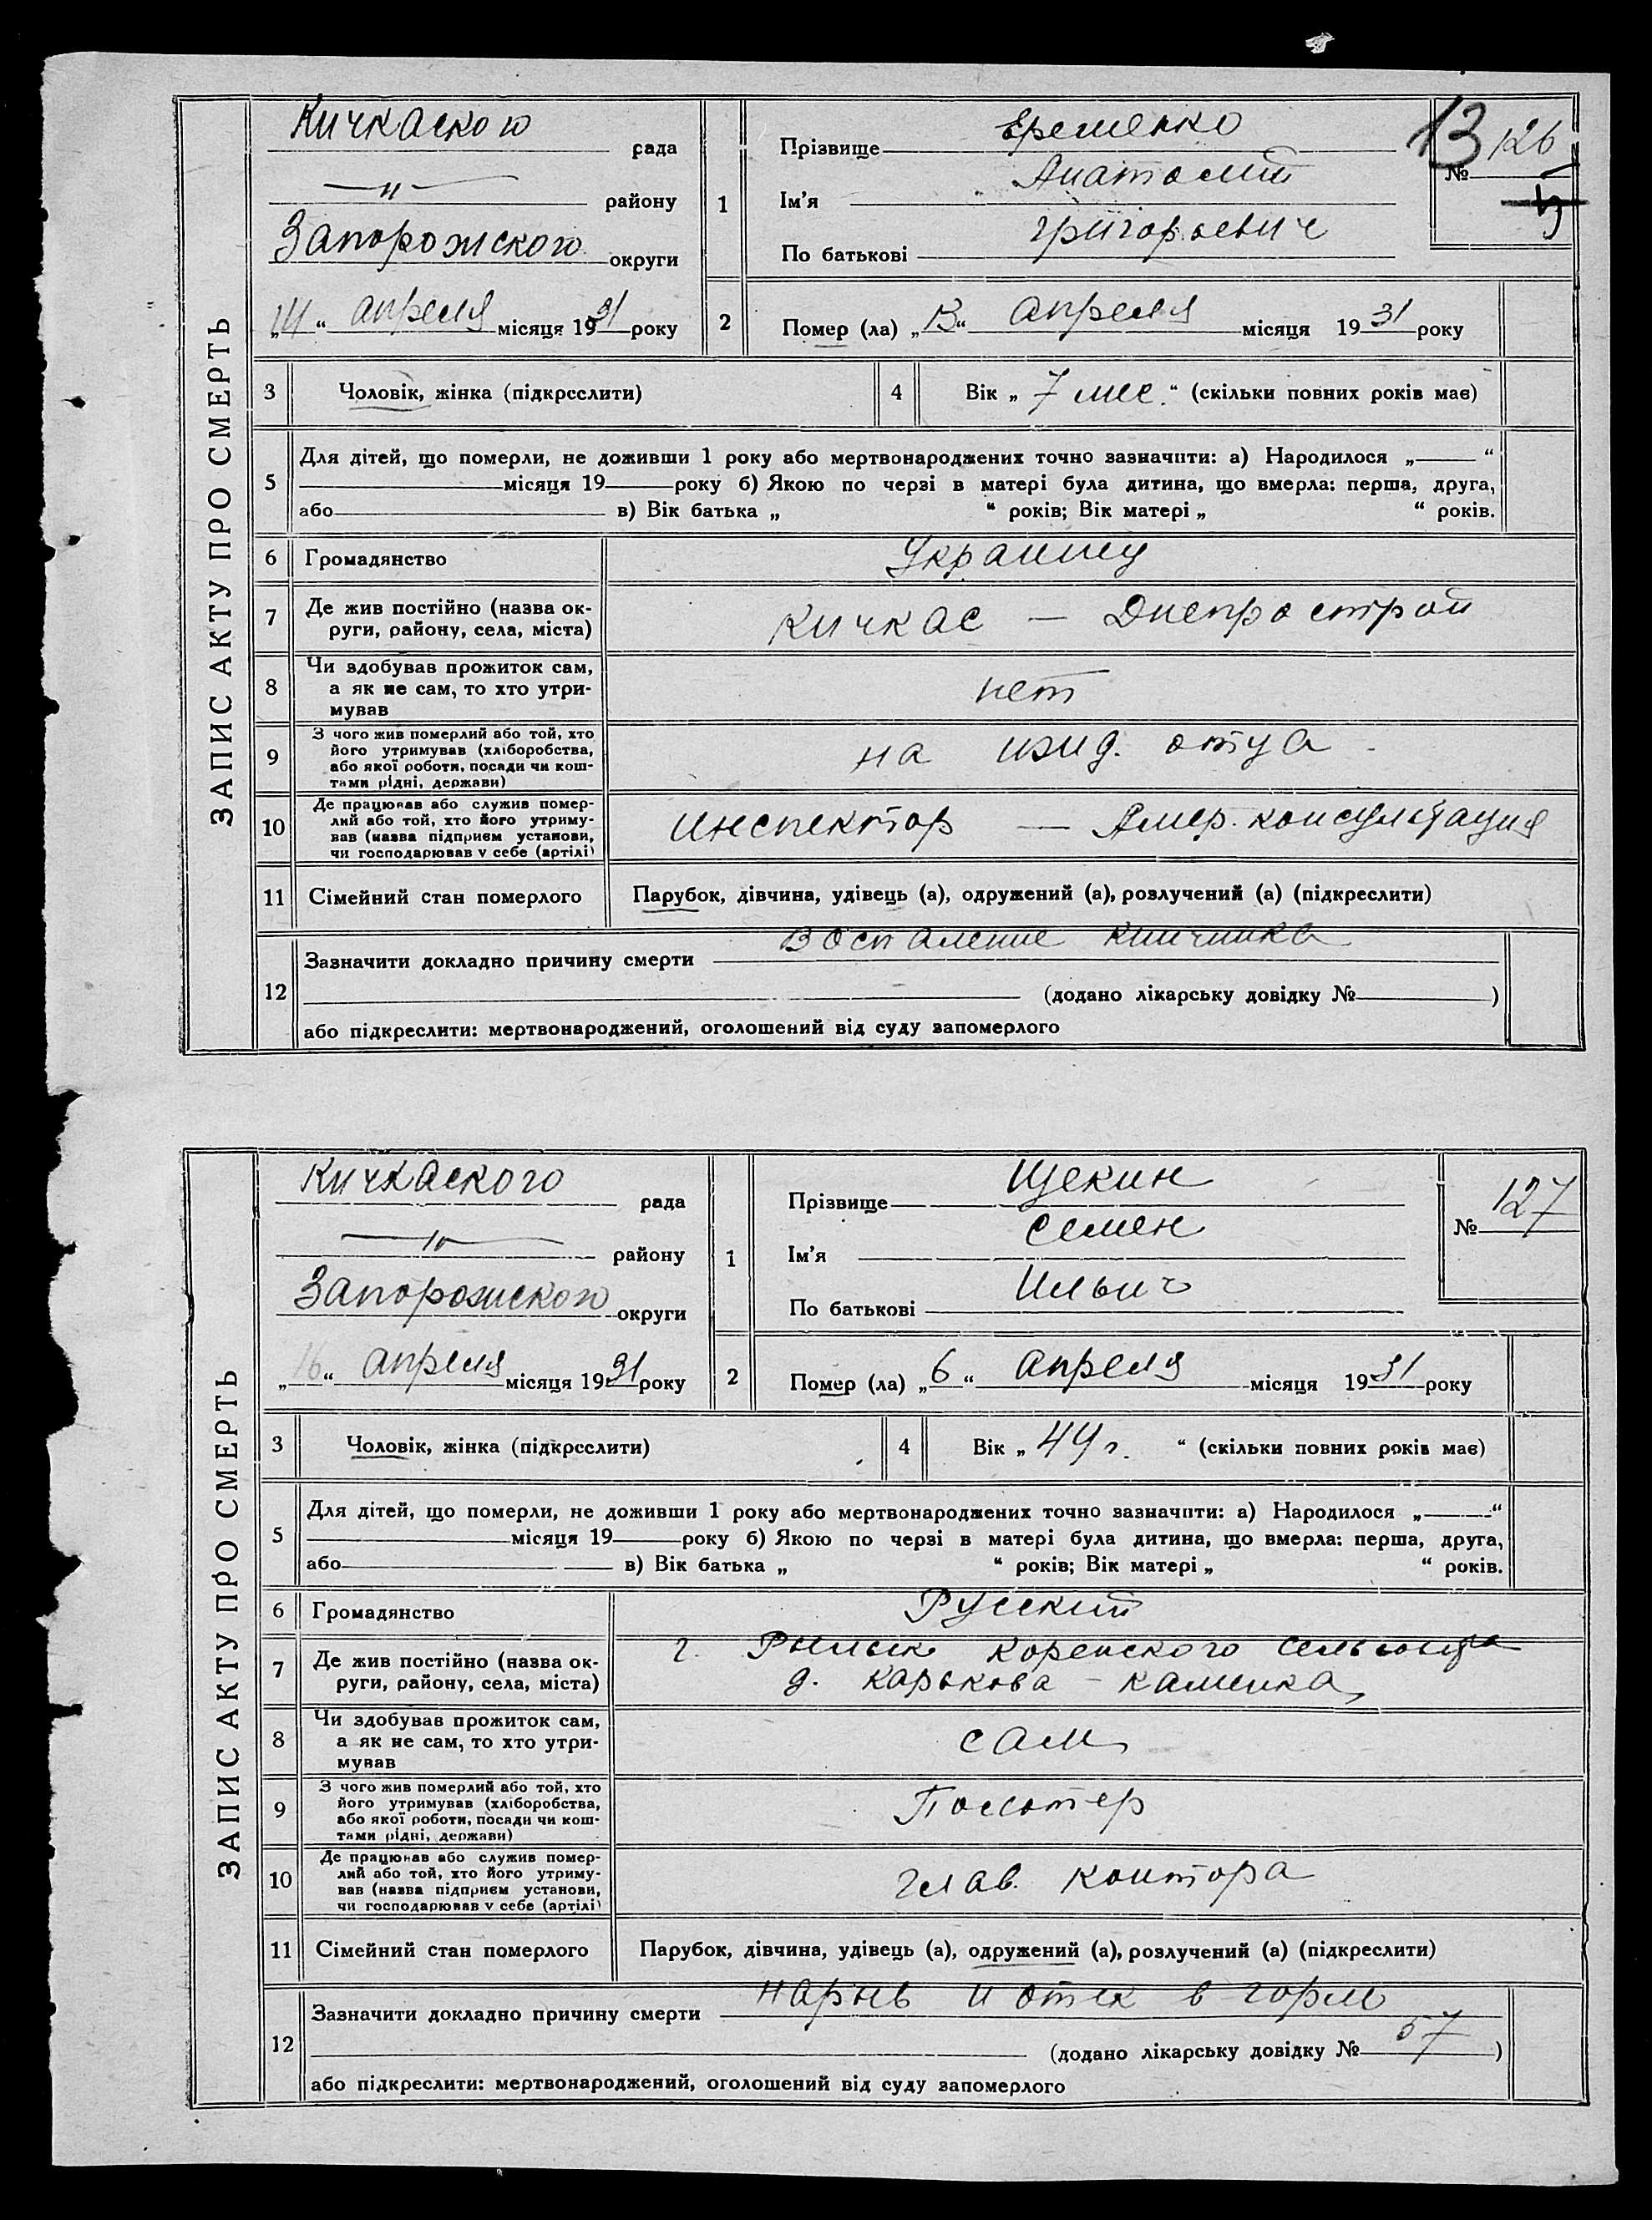 ЗАПИС АКТУ ПРО СМЕРТЬ
Кичкаского рада
—"— району
Запорожского округи
„14“ апреля місяця 1931 року
1
Прізвище Еременко
Ім'я Анатолий
По батькові Григорьевич
13
№ 126
2
Помер (ла) „13“ апреля місяця 1931 року
3 Чоловік, жінка (підкреслити)
4 Вік „7 мес.“ (скільки повних років має)
5 Для дітей, що померли, не доживши 1 року або мертвонароджених точно зазначити: а) Народилося „——“
місяця 19 року б) Якою по черзі в матері була дитина, що вмерла: перша, друга,
або в) Вік батька „ “ років; Вік матері „ “ років.
6 Громадянство Украинец
7 Де жив постійно (назва ок-
руги, району, села, міста)
Кичкас — Днепрострой
8 Чи здобував прожиток сам,
а як не сам, то хто утри-
мував
нет
9 З чого жив померлий або той, хто
його утримував (хліборобства,
або якої роботи, посади чи кош-
тами рідні, держави)
на ижд. отца
10 Де працював або служив помер-
лий або той, хто його утриму-
вав (назва підприєм установи,
чи господарював у себе (артілі)
инспектор — Амер. консультация
11 Сімейний стан померлого Парубок, дівчина, удівець (а), одружений (а), розлучений (а) (підкреслити)
12 Зазначити докладно причину смерти Воспаление кишечника
(додано лікарську довідку № )
або підкреслити: мертвонароджений, оголошений від суду запомерлого
ЗАПИС АКТУ ПРО СМЕРТЬ
Кичкаского рада
—"— району
Запорожского округи
„16“ апреля місяця 1931 року
1
Прізвище Щекин
Ім'я Семен
По батькові Ильич
№ 127
2
Помер (ла) „6“ апреля місяця 1931 року
3 Чоловік, жінка (підкреслити)
4 Вік „44 г. “ (скільки повних років має)
5 Для дітей, що померли, не доживши 1 року або мертвонароджених точно зазначити: а) Народилося „——“
місяця 19 року б) Якою по черзі в матері була дитина, що вмерла: перша, друга,
або в) Вік батька „ “ років; Вік матері „ “ років.
6 Громадянство Русский
7 Де жив постійно (назва ок-
руги, району, села, міста)
г. Рыльск Коренского сельсовета
д. Карькова - Каменка
8 Чи здобував прожиток сам,
а як не сам, то хто утри-
мував
сам
9 З чого жив померлий або той, хто
його утримував (хліборобства,
або якої роботи, посади чи кош-
тами рідні, держави)
Полотер
10 Де працював або служив помер-
лий або той, хто його утриму-
вав (назва підприєм установи,
чи господарював у себе (артілі)
Глав. контора
11 Сімейний стан померлого Парубок, дівчина, удівець (а), одружений (а), розлучений (а) (підкреслити)
12 Зазначити докладно причину смерти нарыв и отек в горле
(додано лікарську довідку № 57 )
або підкреслити: мертвонароджений, оголошений від суду запомерлого